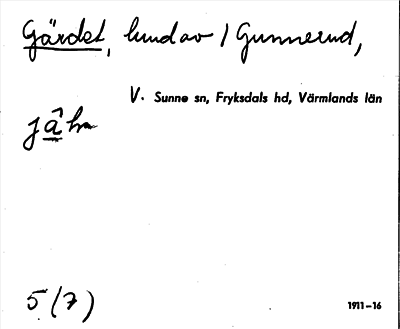 Gärdet, hmd av 1 Gunnerud,
V. Sunne sn, Fryksdals hd, Värmlands län
5 (7)
1911-16